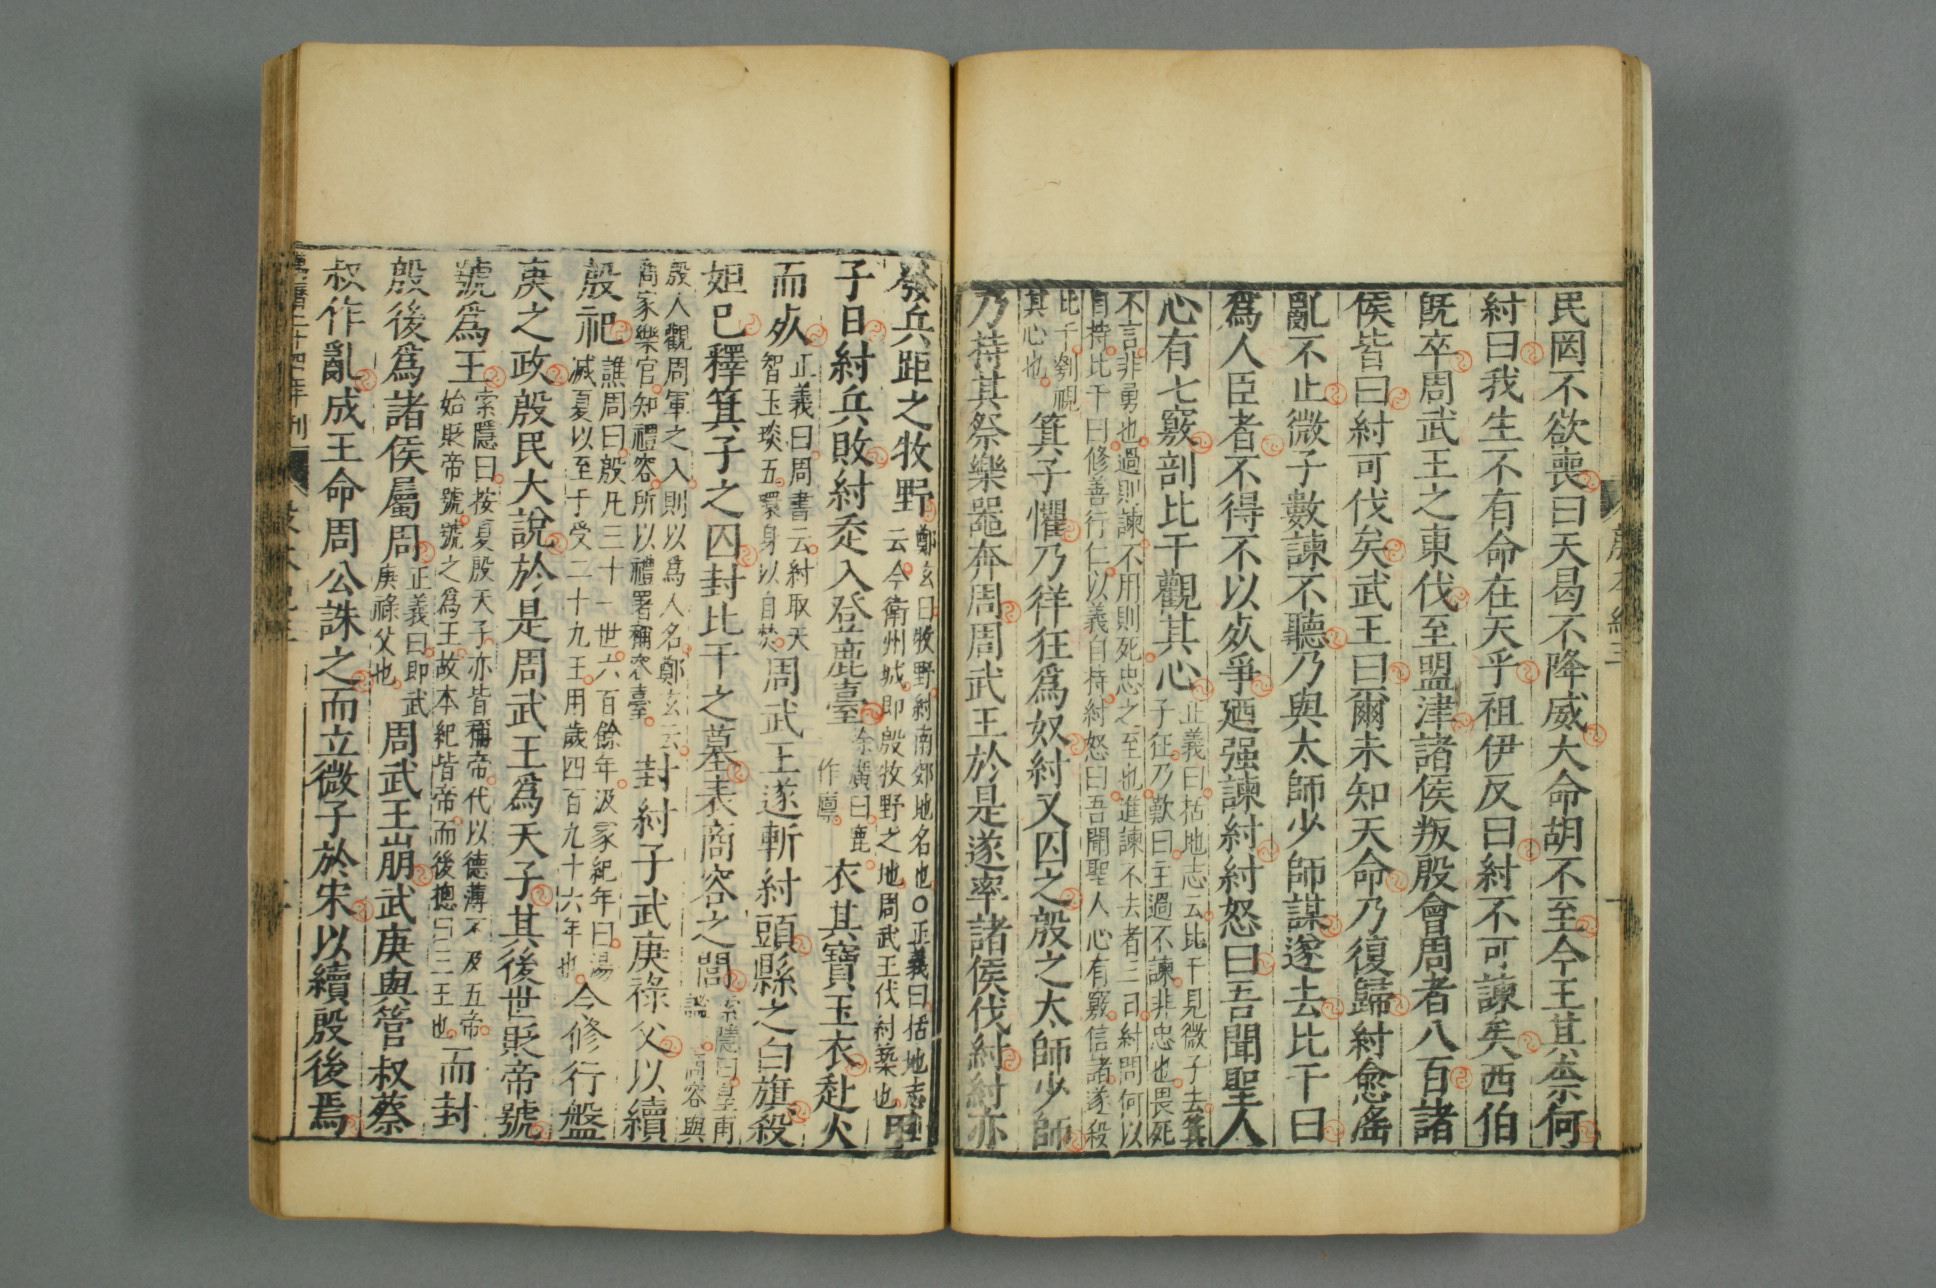 民罔不欲喪曰天曷不降威大命胡不至今王其柰何
紂曰我生不有命在天乎祖伊反曰紂不可諫矣西伯
既卒周武王之東伐至盟津諸侯叛殷會周者八百諸
侯皆曰紂可伐矣武王曰爾未知天命乃復歸紂愈淫
亂不止微子數諫不聽乃與太師少師謀遂去比干曰
爲人臣者不得不以死爭廼强諫紂紂怒曰吾聞聖人
心有七竅剖比干觀其心
正義曰括地志云比干見微子去箕
子狂乃歎曰主過不諫非忠也畏死
不言非勇也過則諫不用則死忠之至也進諫不去者三日紂問何以
自持比干曰修善行仁以義自持紂怒曰吾聞聖人心有竅信諸遂殺
比干刳視
其心也
箕子懼乃徉狂爲奴紂又囚之殷之太師少師
乃持其祭樂噐奔周周武王於是遂率諸侯伐紂紂亦
殷本紀三
發兵距之牧野
鄭玄曰牧野紂南郊地名也○正義曰括地志
云今衛州城即殷牧野之地周武王伐紂築也
甲
子日紂兵敗紂走入登鹿臺
徐廣曰鹿
作廩
衣其寶玉衣赴火
而死
正義曰周書云紂取天
智玉琰五環身以自焚
周武王遂斬紂頭縣之白旗殺
妲已釋箕子之囚封比干之墓表商容之閭
索隱曰皇甫
謐
商容與
殷人觀周軍之入則以爲人名鄭玄云
商家樂官知禮容所以禮署稱容臺
封紂子武庚祿父以續
殷祀
譙周曰殷凡三十一世六百餘年汲冢紀年曰湯
滅夏以至于受二十九王用歲四百九十六年也
令修行盤
庚之政殷民大說於是周武王爲天子其後世貶帝號
號爲王
索隱曰按夏殷天子亦皆稱帝代以德薄不及五帝
始貶帝號號之爲王故本紀皆帝而後摠曰三王也
而封
殷後爲諸侯屬周
正義曰即武
庚祿父也
周武王崩武庚與管叔蔡
叔作亂成王命周公誅之而立微子於宋以續殷後焉
萬曆二十四年刊
殷本紀三